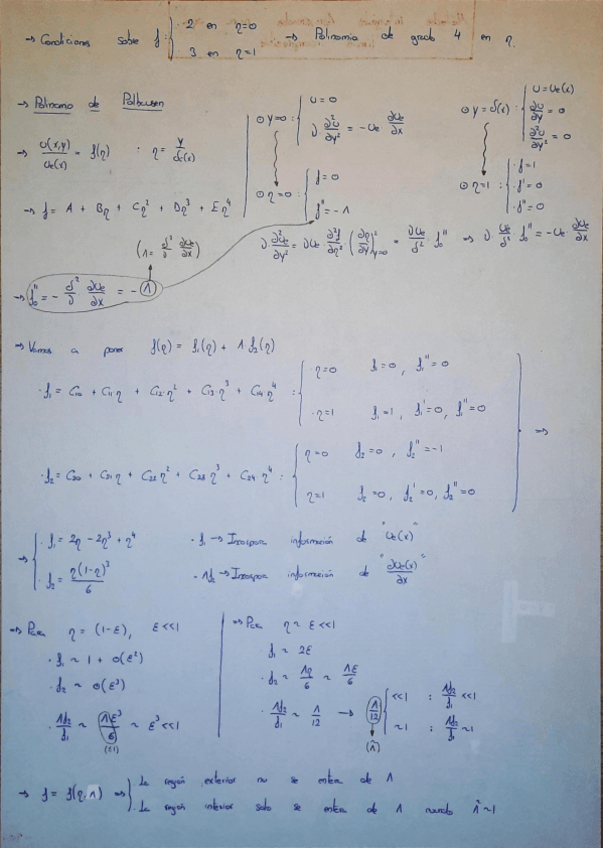 → Condiciones sobre f: { · 2 en η=0 → Polinomio de grado 4 en η.
· 3 en η=1
→ Polinomio de Polhausen
⊙ y=0: { u=0
ν ∂²u/∂y² = -ue ∂ue/∂x
⊙ y=δ(x): { u=ue(x)
∂u/∂y = 0
∂²u/∂y² = 0
→ u(x,y)/ue(x) = f(η) · η = y/δ(x)
⊙ η=0: { f=0
f''=-Λ
⊙ η=1: { · f=1
· f'=0
· f''=0
→ f = A + Bη + Cη² + Dη³ + Eη⁴
(Λ = δ²/ν ∂ue/∂x)
ν ∂²u/∂y² = νue ∂²f/∂η² (∂η/∂y)²y=0 = νue/δ² f''0 ⇒ ν ue/δ² f''0 = -ue ∂ue/∂x
→ f''0 = - δ²/ν ∂ue/∂x = - Λ
→ Vamos a poner f(η) = f1(η) + Λ f2(η)
· f1 = C10 + C11·η + C12·η² + C13·η³ + C14·η⁴ : { · η=0 f1=0 , f1''=0
· η=1 f1=1, f1'=0, f1''=0
⇒
· f2 = C20 + C21η + C22η² + C23η³ + C24η⁴ : { η=0 f2=0 , f2''=-1
η=1 f2=0, f2'=0, f2''=0
⇒ { · f1 = 2η - 2η³ + η⁴ · f1 → Incorpora información de "ue(x)"
· f2 = η(1-η)³/6 · Λf2 → Incorpora información de "∂ue(x)/∂x"
→ Para η = (1-ε), ε<<1
· f1 ~ 1 + o(ε²)
· f2 ~ o(ε³)
· Λf2/f1 ~ Λε³/6 ~ ε³ <<1
→ Para η ~ ε <<1
· f1 ~ 2ε
· f2 ~ Λη/6 ~ Λε/6
· Λf2/f1 ~ Λ/12 → Λ/12 { <<1 : Λf2/f1 <<1
~1 : Λf2/f1 ~1
(Λ̂)
→ f = f(η,Λ) ⇒ { · La región exterior no se entera de Λ
· La región interior solo se entera de Λ cuando Λ̂~1